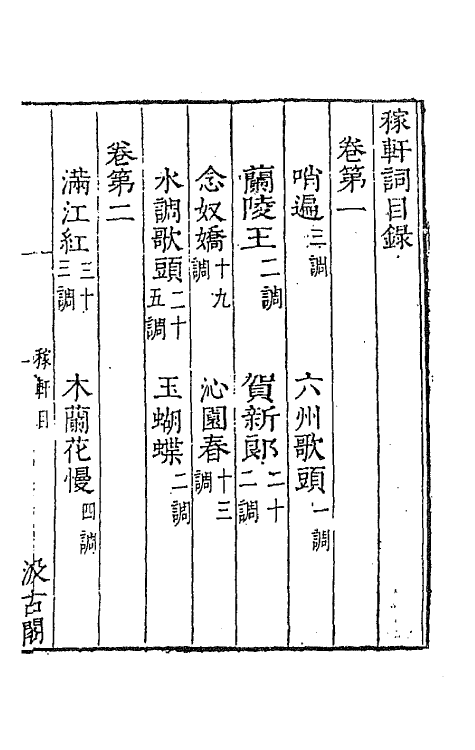 稼軒詞目錄
卷第一
哨遍三調　六州歌頭一調
蘭陵王二調　賀新郎二十二調
念奴嬌十九調　沁園春十三調
水調歌頭二十五調　玉蝴蝶二調
卷第二
滿江紅三十三調　木蘭花慢四調
稼軒目　汲古閣